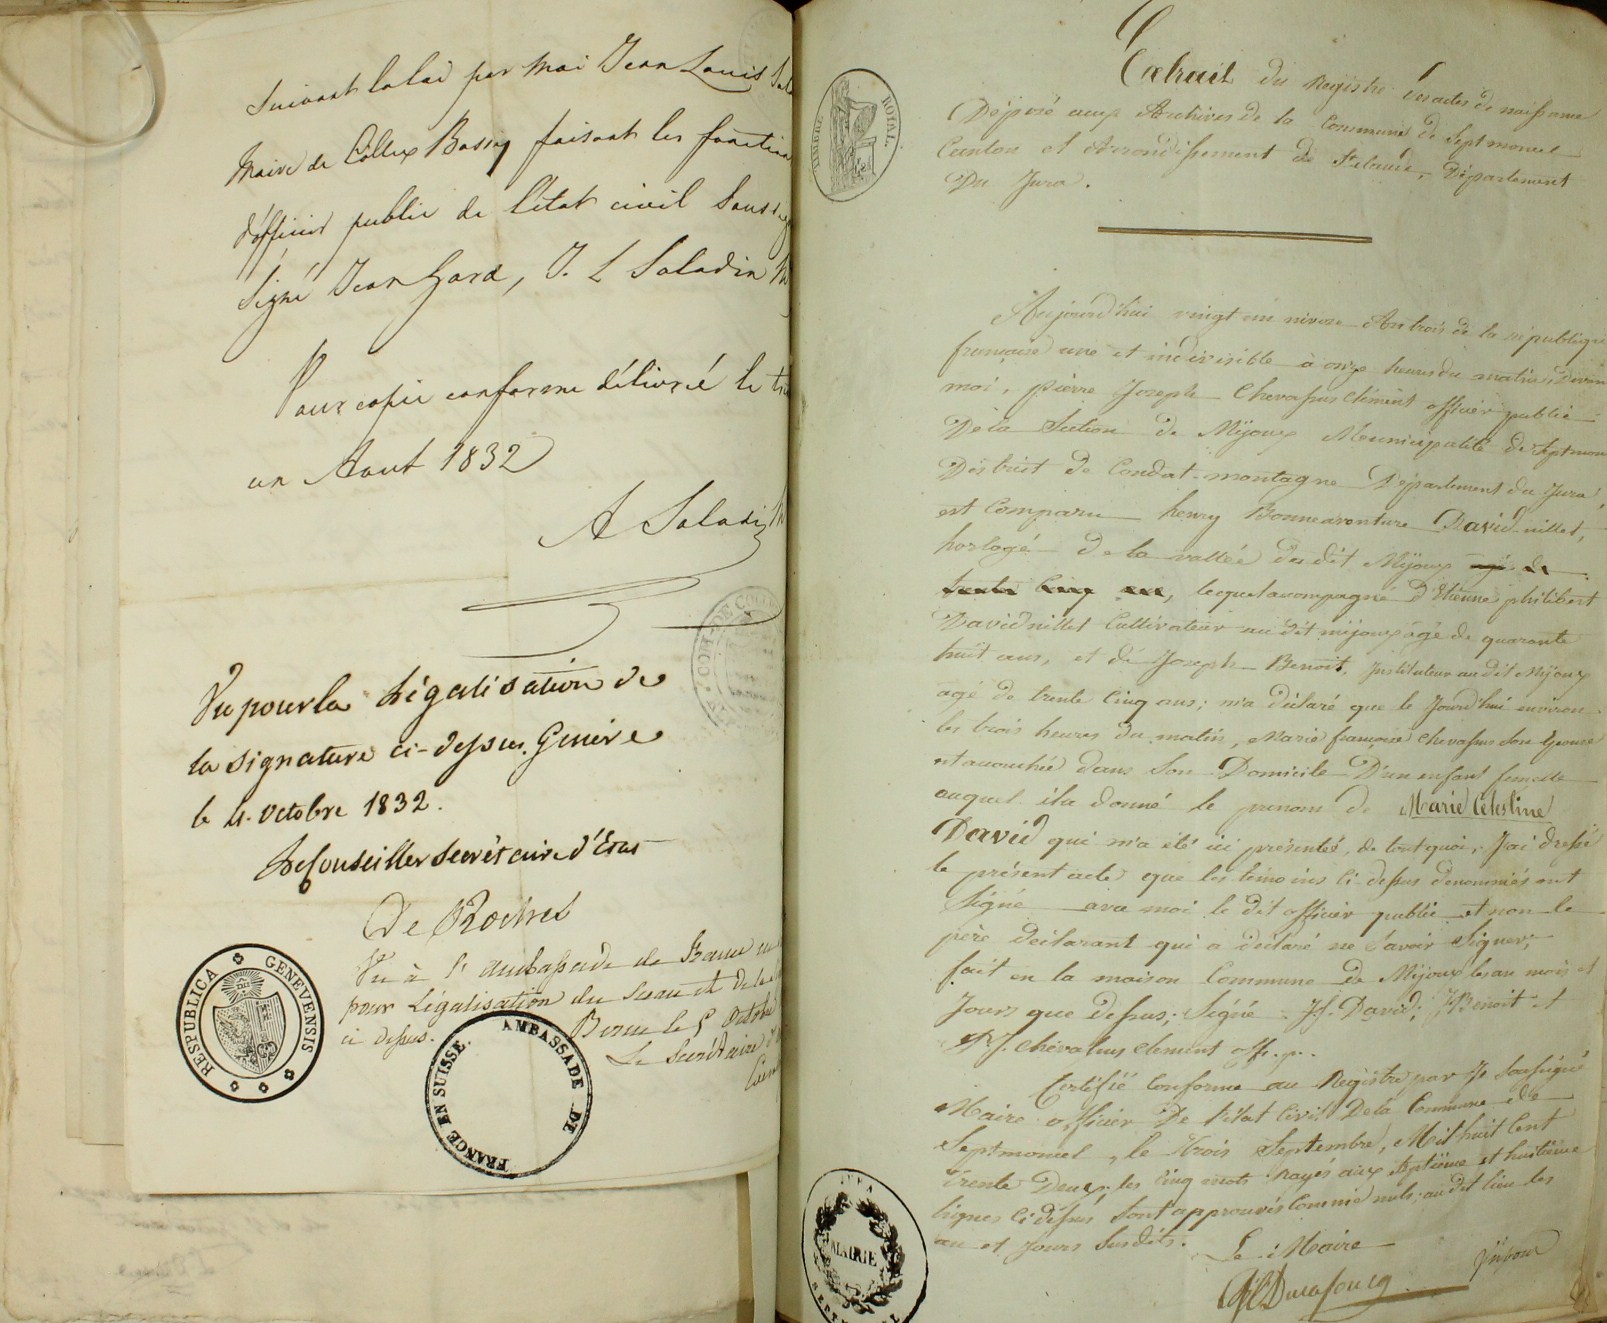 Suivant la loi par moi Jean Louis
Maire de Collex Bossy faisant les fonction
d'officier public de l'état civil Sous
Signé Jean Gard, J. L Saladin
Pour copie conforme délivré le
un Aout 1832
A Saladin
Vu pour la Légalisation de
la signature ci-dessus. Genève
le 4. Octobre 1832.
Le Conseiller Secrétaire d'Etat
De Roches
Vu à l'ambassade de France
pour Légalisation du Sceau et de la
ci dessus. Berne le 5 Octobre
Le Secrétaire
RESPUBLICA GENEVENSIS
AMBASSADE DE FRANCE EN SUISSE.
TIMBRE ROYAL
Extrait du Registre des actes de naissance
Déposé aux Archives de la Commune de Septmoncel
Canton et Arrondissement de St Claude, Département
Du Jura.
Aujourd'hui vingt un nivose An trois de la république
française une et indivisible à onze heures du matin, Devant
moi, pierre Joseph Chevassus Clément officier public
De la Section de Mijoux Municipalité de Septmon
District de Condat-montagne Département du Jura,
est Comparu henry Bonneaventure David nillet,
horlogé de la vallée du dit Mijoux agé de
trente Cinq ans, lequel acompagné d'Etienne philibert
David nillet Cultivateur au dit mijoux agé de quarante
huit ans, et de Joseph Benoit, Instituteur au dit Mijoux
agé de trente Cinq ans; m'a déclaré que le Jourd'hui environ
les trois heures du matin, Marie françoise Chevassus Son Epouse
est acouchée dans Son Domicile D'un enfant femelle
auquel il a donné le prenom de Marie Célestine
David qui m'a été ici présentée, de tout quoi, J'ai dressé
le présent acte que les témoins Ci-dessus denommés ont
Signé avec moi le dit officier public et non le
père déclarant qui a déclaré ne Savoir Signer;
fait en la maison Commune de Mijoux les an mois et
Jours que dessus; Signé. Jf. David; J Benoit et
P. J. Chevassus Clement off. p..
Certifié Conforme au Registre par Je Soussigné
Maire officier De l'état Civil De la Commune de
Septmoncel, le trois Septembre, Mil huit Cent
trente Deux; les Cinq mots Rayés aux Septième et huitième
lignes Ci-dessus Sont approuvés Comme nuls; au dit lieu les
an et Jours Susdits.
Le Maire
MAIRIE
JURA